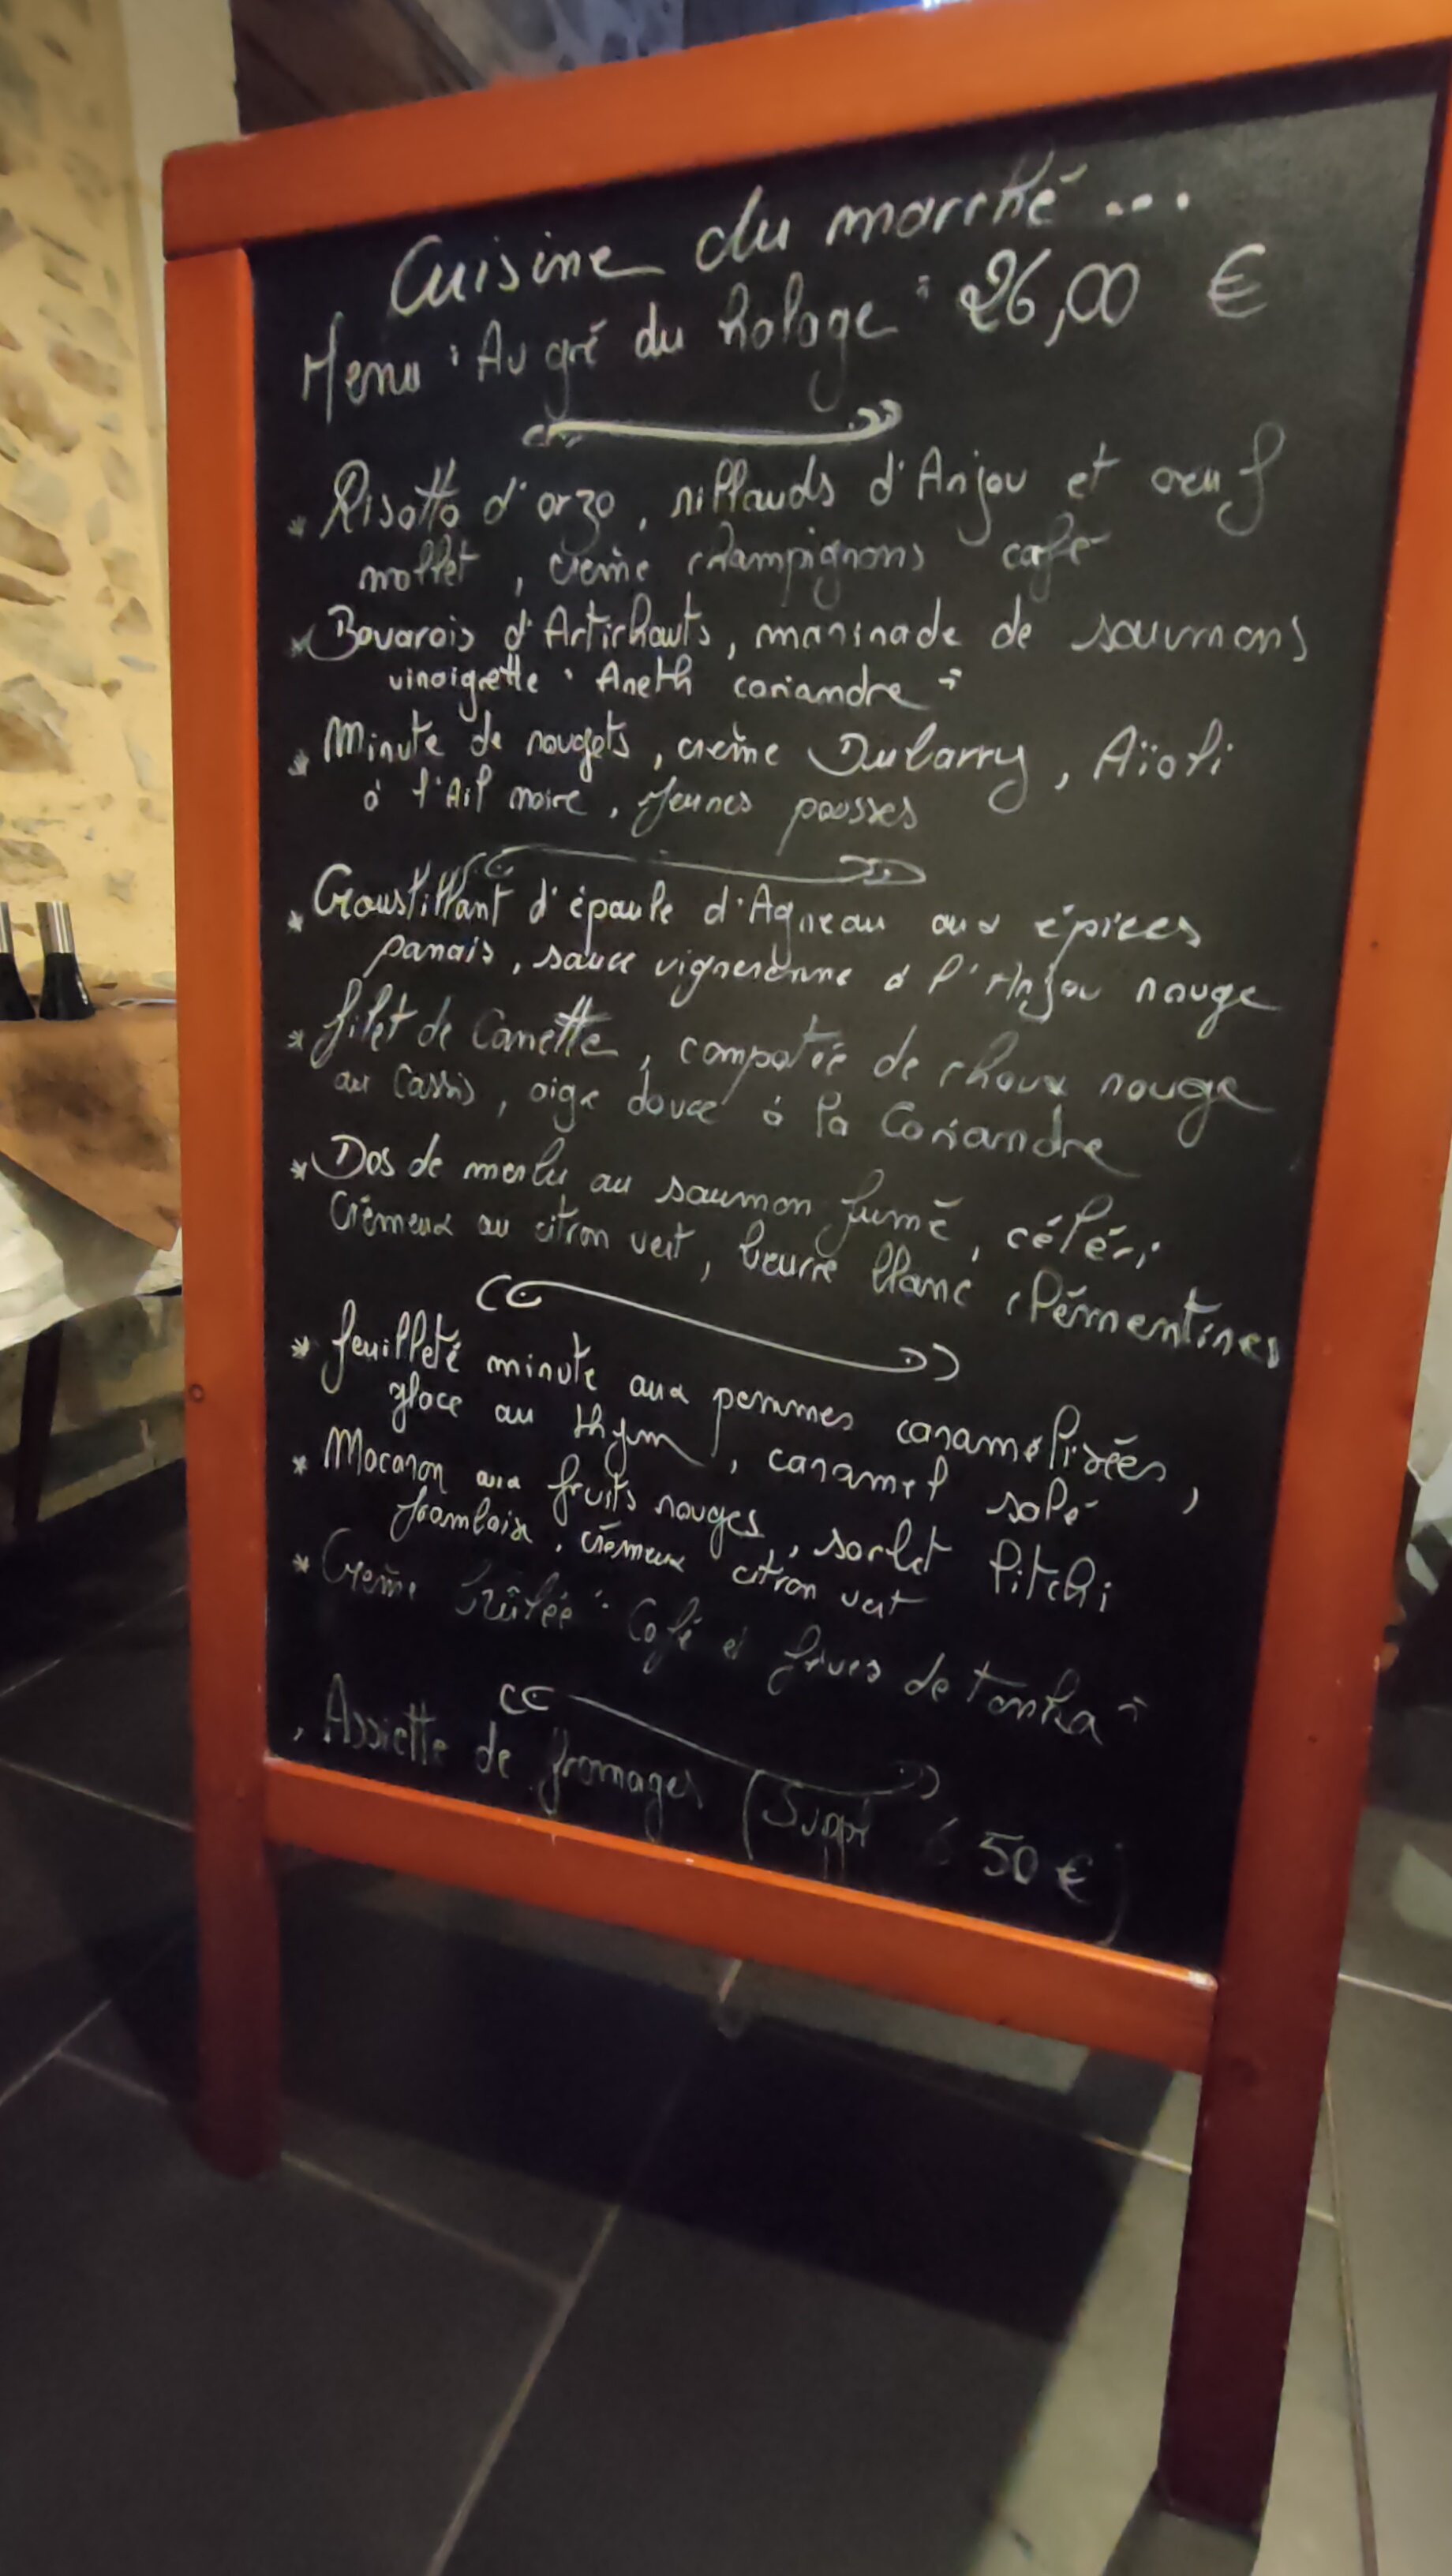 Cuisine du marché ...
Menu : Au gré du halage : 26,00 €
* Risotto d'orzo, rillauds d'Anjou et œuf
mollet, crème champignons café
* Bavarois d'Artichauts, marinade de saumons
vinaigrette " Aneth coriandre "
* Minute de nougets, crème Dubarry, Aïoli
à l'Ail noire, Jeunes pousses
* Croustillant d'épaule d'Agneau aux épices
panais, sauce vigneronne à l'Anjou rouge
* filet de Canette, compotée de choux rouge
au Cassis, aigre douce à la Coriandre
* Dos de merlu au saumon fumé, céléri
Crémeux au citron vert, beurre blanc clémentines
* feuilleté minute aux pommes caramélisées,
glace au thym, caramel salé
* Macaron aux fruits rouges, sorbet litchi
framboise, crémeux citron vert
* Crème brûlée " Café et fèves de tonka "
, Assiette de fromages (Suppl 50 €)